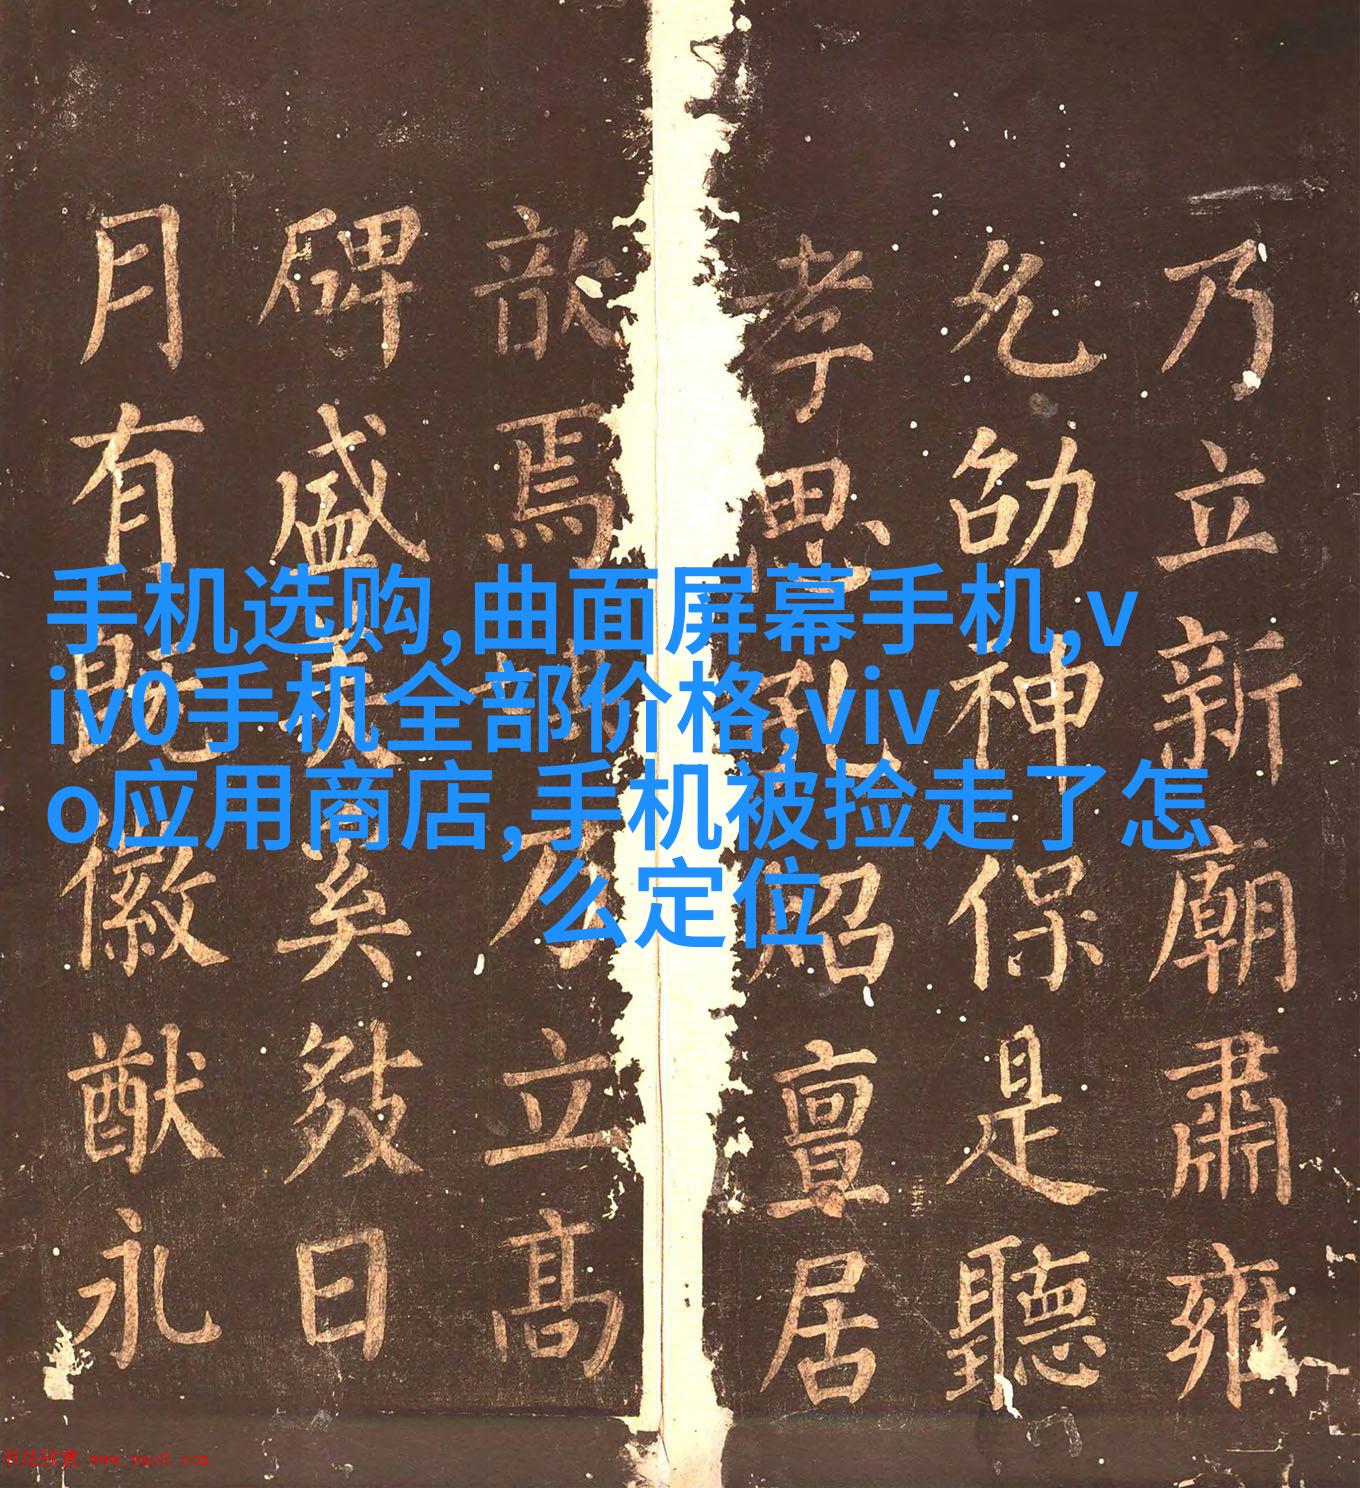 手机选购,曲面屏幕手机,v
iv0手机全部价格,viv
o应用商店,手机被捡走了怎
么定位
乃立新廟肅雍
允劭神保是聽
孝思孔昭亶居
歆焉乃立高
碑盛矣日
月有既徽猷永
书法欣赏 www.yac8.com